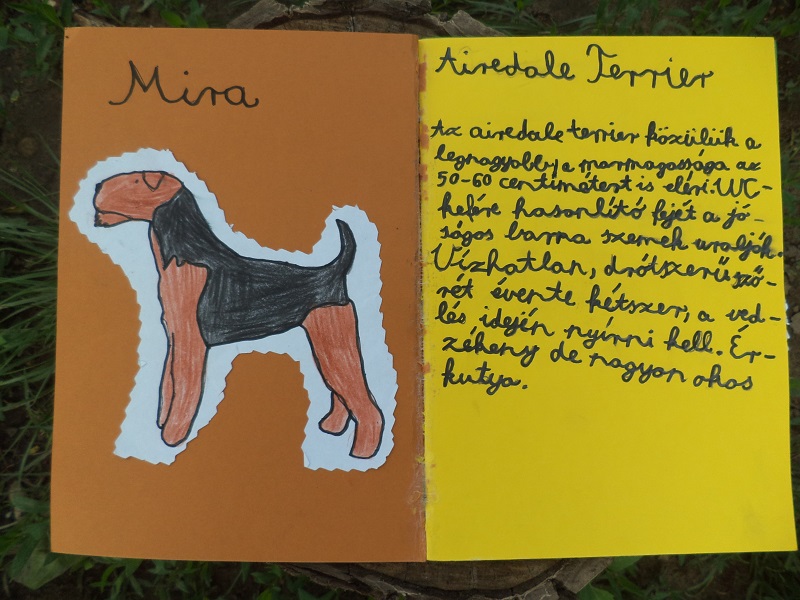 Mira
Airedale Terrier
Az airedale terrier közülük a
legnagyobb, a marmagassága az
50-60 centimétert is eléri. WC-
kefére hasonlító fejét a jó-
ságos barna szemek uralják.
Vízhatlan, drótszerű sző-
rét évente kétszer, a ved-
lés idején nyírni kell. Ér-
zékeny de nagyon okos
kutya.